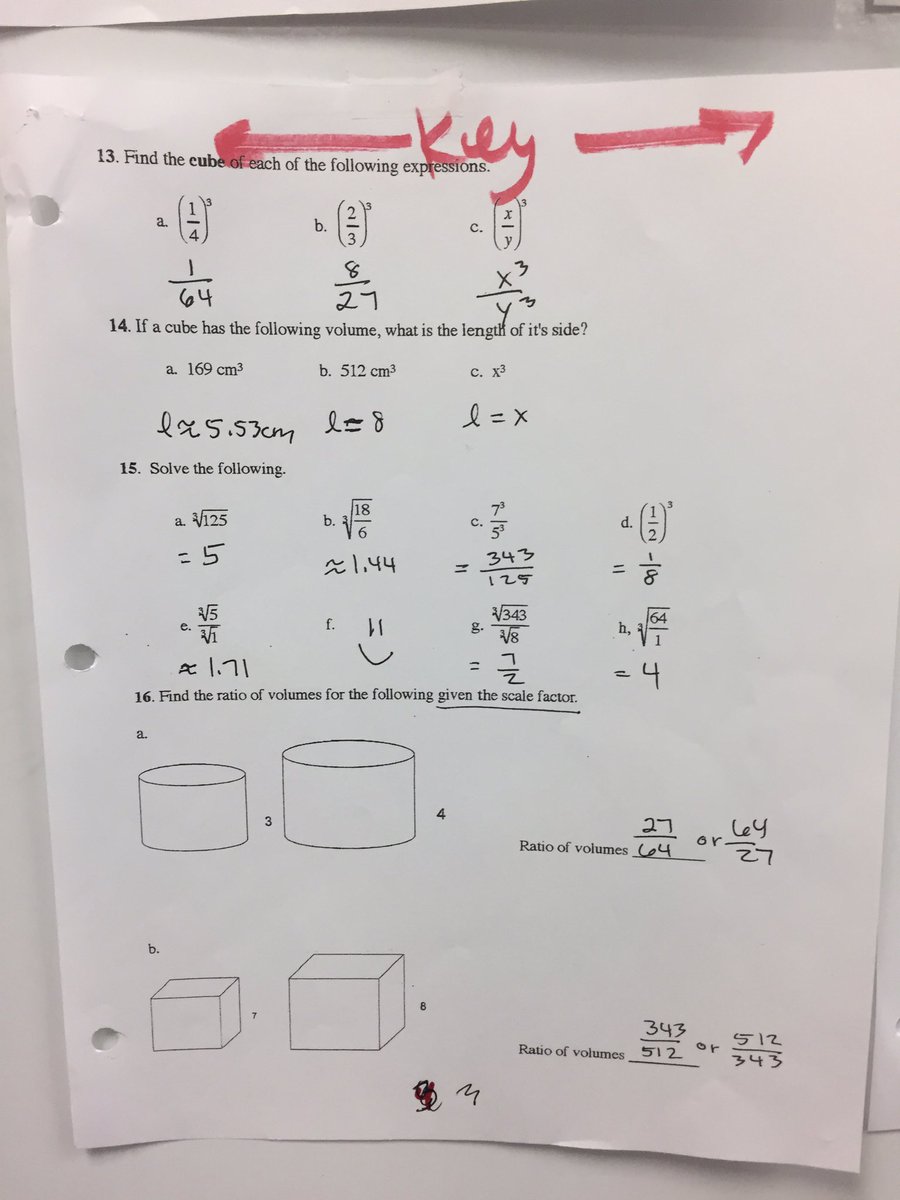 Key
13. Find the cube of each of the following expressions.
a. (1/4)³ b. (2/3)³ c. (x/y)³
1/64 8/27 x³/y³
14. If a cube has the following volume, what is the length of it's side?
a. 169 cm³ b. 512 cm³ c. x³
l≈5.53cm l=8 l=x
15. Solve the following.
a. ∛125 b. ∛(18/6) c. 7³/5³ d. (1/2)³
=5 ≈1.44 = 343/125 = 1/8
e. ∛5/∛1 f. g. ∛343/∛8 h, ∛(64/1)
≈1.71 = 7/2 =4
16. Find the ratio of volumes for the following given the scale factor.
a.
3 4
Ratio of volumes 27/64 or 64/27
b.
7 8
Ratio of volumes 343/512 or 512/343
3